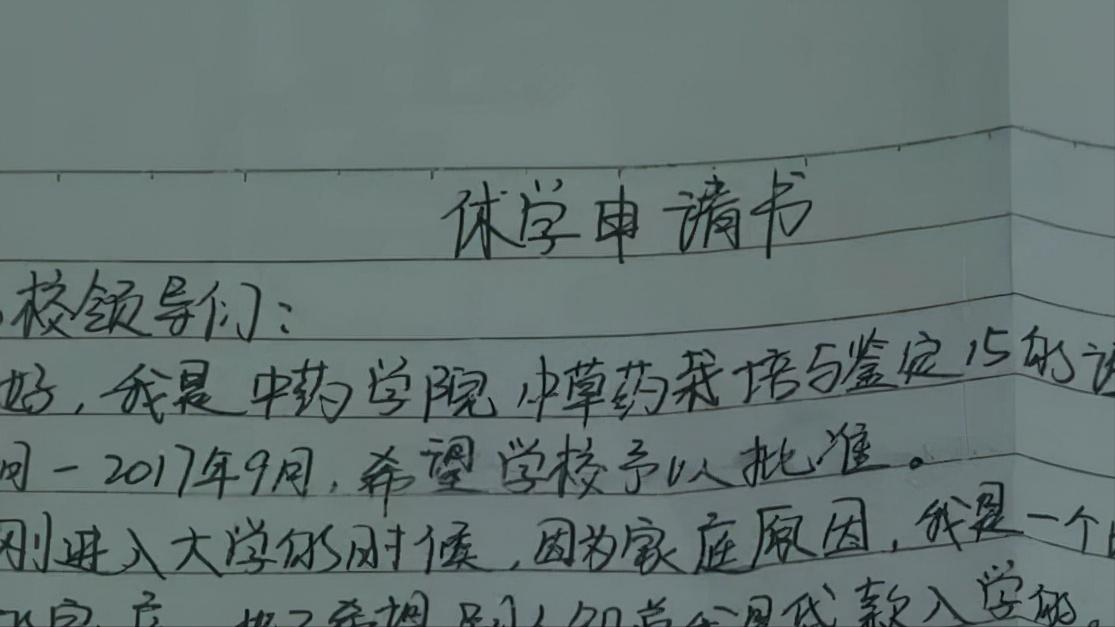 休学申请书
校领导们：
好，我是中药学院，中草药栽培与鉴定15的
间-2017年9月，希望学校予以批准。
刚进入大学的时候，因为家庭原因，我是一个
款入学的。